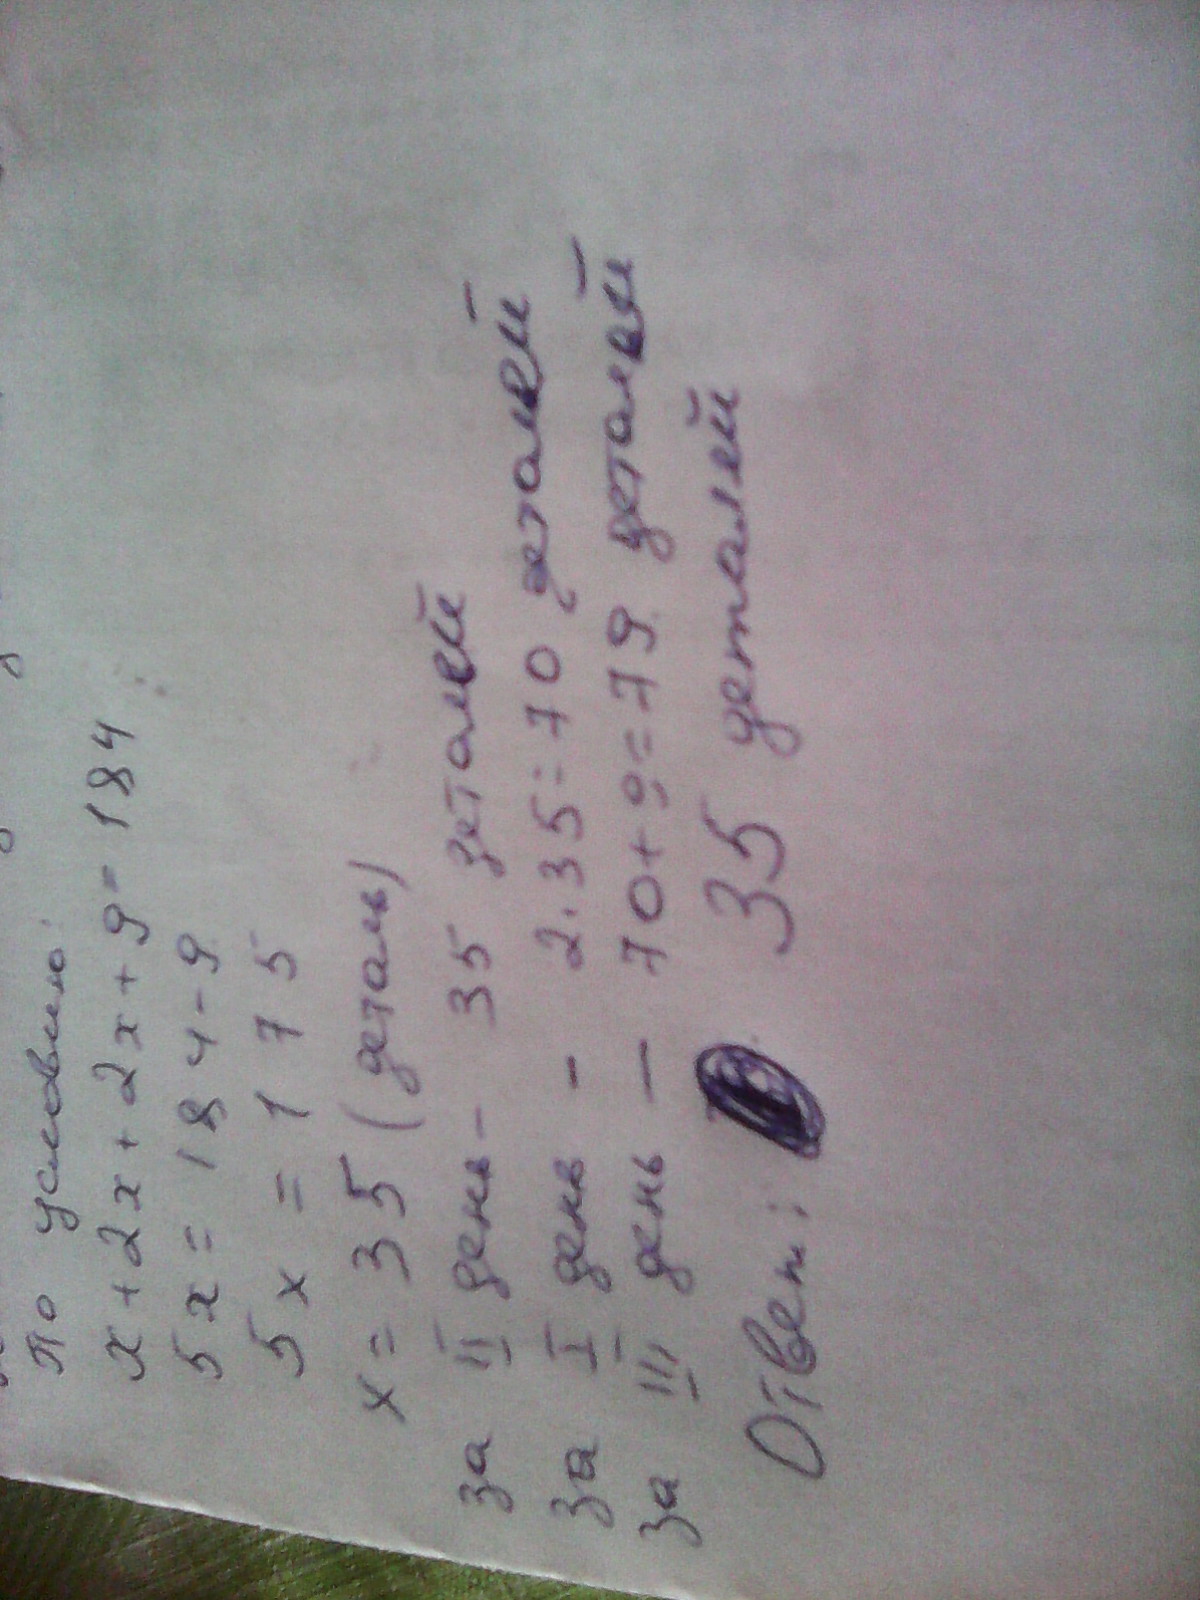 по условию:
x+2x+2x+9=184
5x=184-9
5x=175
x=35 (деталь)
за II день - 35 деталей
за I день - 2.35=70 деталей
за III день - 70+9=79 деталей
Ответ: 35 деталей